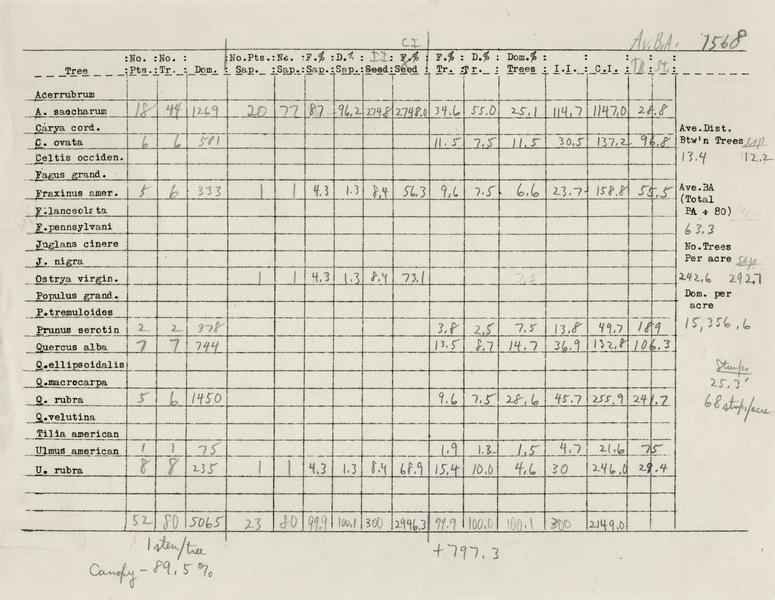 Av.B.A. 1568
CI
:No. :No. : :No.Pts.:No. :F.% :D.% : II : F.% : F.% : D.% : Dom.% : : : TR : St.
Tree :Pts.:Tr. : Dom. : Sap. :Sap.:Sap.:Sap.:Seed:Seed : Tr. :Tr. : Trees : I.I. : C.I. :
Acerrubrum
A. saccharum 18 44 1269 20 77 87 96.2 274.8 2748.0 34.6 55.0 25.1 114.7 1147.0 28.8
Carya cord.
C. ovata 6 6 581 11.5 7.5 11.5 30.5 137.2 96.8
Celtis occiden.
Fagus grand.
Fraxinus amer. 5 6 333 1 1 4.3 1.3 8.4 56.3 9.6 7.5 6.6 23.7 158.8 55.5
F.lanceolata
F.pennsylvani
Juglans cinere
J. nigra
Ostrya virgin. 1 1 4.3 1.3 8.4 73.1 7.5
Populus grand.
P.tremuloides
Prunus serotin 2 2 378 3.8 2.5 7.5 13.8 49.7 189
Quercus alba 7 7 744 13.5 8.7 14.7 36.9 132.8 106.3
Q.ellipsoidalis
Q.macrocarpa
Q. rubra 5 6 1450 9.6 7.5 28.6 45.7 255.9 241.7
Q.velutina
Tilia american
Ulmus american 1 1 75 1.9 1.3 1.5 4.7 21.6 75
U. rubra 8 8 235 1 1 4.3 1.3 8.4 68.9 15.4 10.0 4.6 30 246.0 29.4
52 80 5065 23 80 99.9 100.1 300 2946.3 99.9 100.0 100.1 300 2149.0
Ave.Dist.
Btw'n Trees sap
13.4 12.2
Ave.BA
(Total
PA ÷ 80)
63.3
No.Trees
Per acre sap.
242.6 292.7
Dom. per
acre
15,356.6
Stumps
25.3'
68 stmps/acre
1 sten/tree
Canopy - 89.5%
+797.3